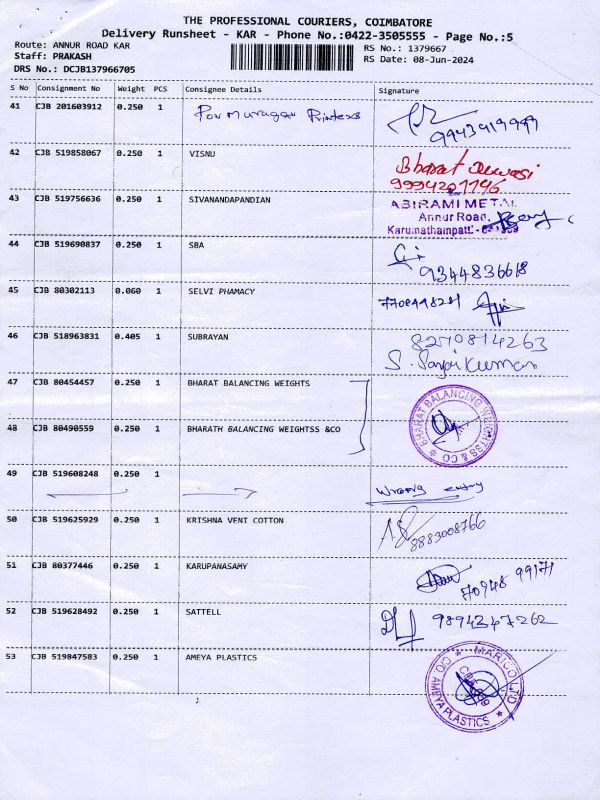 THE PROFESSIONAL COURIERS, COIMBATORE
Delivery Runsheet - KAR - Phone No.:0422-3505555 - Page No.:5
Route: ANNUR ROAD KAR
RS No.: 1379667
Staff: PRAKASH
RS Date: 08-Jun-2024
DRS No.: DCJB137966705
S No Consignment No Weight PCS Consignee Details Signature
41 CJB 201603912 0.250 1 Por Murugan Printers
9943919999
42 CJB 519858067 0.250 1 VISNU
Bharat
9994201146
43 CJB 519756636 0.250 1 SIVANANDAPANDIAN
ABIRAMI METAL
Annur Road,
Karumathampatti -
44 CJB 519690837 0.250 1 SBA
9344836618
45 CJB 80302113 0.060 1 SELVI PHAMACY
46 CJB 518963831 0.405 1 SUBRAYAN
8270814263
S. Sanjai Kumar
47 CJB 80454457 0.250 1 BHARAT BALANCING WEIGHTS
BHARAT BALANCING WEIGHTSS & CO
48 CJB 80490559 0.250 1 BHARATH BALANCING WEIGHTSS &CO
49 CJB 519608248 0.250 1
wrong entry
50 CJB 519625929 0.250 1 KRISHNA VENI COTTON
8883008766
51 CJB 80377446 0.250 1 KARUPANASAMY
70948 99171
52 CJB 519628492 0.250 1 SATTELL
9894347262
53 CJB 519847583 0.250 1 AMEYA PLASTICS
MARICO LTD
C/O AMEYA PLASTICS